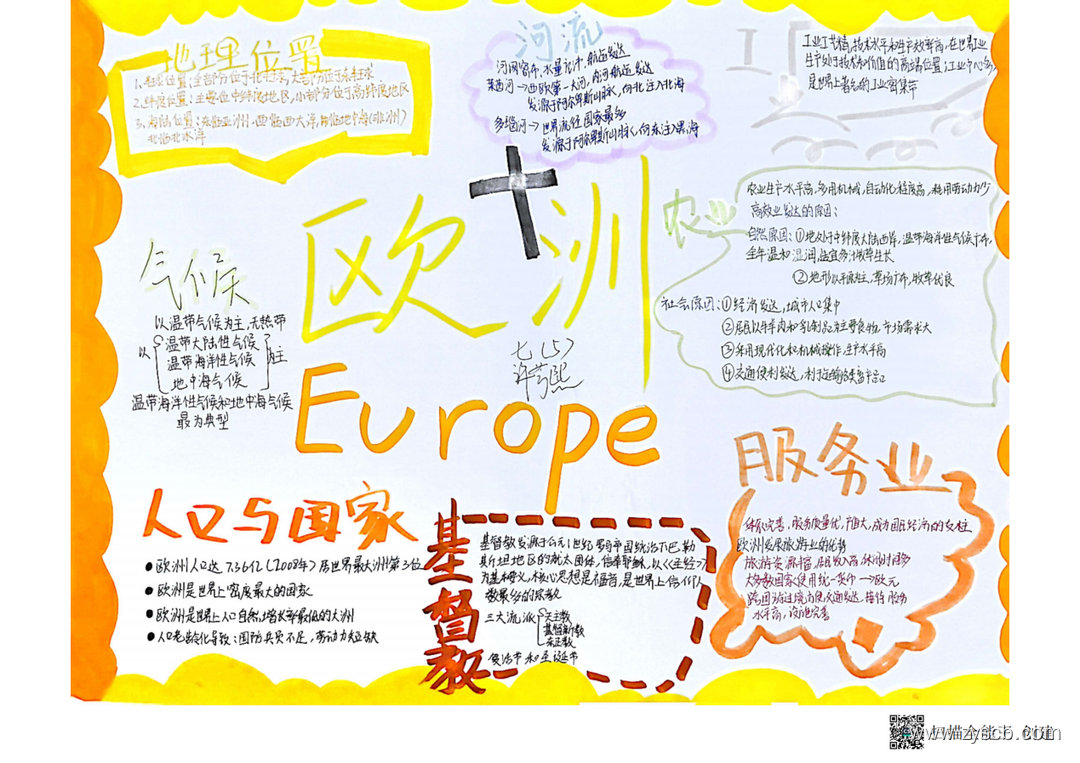 地理位置
1.半球位置:全部分位于北半球,大部分位于东半球
2.纬度位置:主要位中纬度地区,小部分位于高纬度地区
3.海陆位置:东临亚洲,西临大西洋,南临地中海(非洲)
北临北冰洋
河流
河网密布,水量充沛,航运发达
莱茵河→西欧第一大河,内河航运发达
发源于阿尔卑斯山脉,向北注入北海
多瑙河→世界流经国家最多
发源于阿尔卑斯山脉,向东注入黑海
工业
工业工艺精,技术水平和生产效率高,在世界工业
生产处于技术和价值的高端位置,工业中心多
是世界上著名的工业密集带
农业
农业生产水平高,多用机械,自动化程度高,耗用劳动力少
高效业发达的原因:
自然原因:①地处于中纬度大陆西岸,温带海洋性气候广布,
全年温和湿润,适宜多汁牧草生长
②地形以平原为主,草场广布,牧草优良
社会原因:①经济发达,城市人口集中
②居民以牛羊肉和乳制品为主要食物,市场需求大
③采用现代化和机械操作,生产水平高
④交通便利发达,利于运输
欧洲
Europe
七(5)
气候
以温带气候为主,无热带
以 温带大陆性气候
温带海洋性气候 为主
地中海气候
温带海洋性气候和地中海气候
最为典型
人口与国家
● 欧洲人口达7.36亿(2008年)居世界最大洲第3位
● 欧洲是世界上密度最大的国家
● 欧洲是世界上人口自然增长率最低的大洲
● 人口老龄化导致:国防兵员不足,劳动力较缺
基督教
基督教发源于公元1世纪罗马帝国统治下巴勒
斯坦地区的犹太团体,信奉耶稣,以《圣经》
为基本教义,核心思想是福音,是世界上信仰人
数最多的宗教
三大流派 天主教
基督新教
东正教
复活节和圣诞节
服务业
体系完善,服务质量优,产值大,成为国民经济的支柱
欧洲发展旅游业的优势
旅游资源丰富,居民收入高,休闲时间多
大多数国家使用统一货币→欧元
跨国游过境方便,交通发达,接待服务
水平高,设施完善
扫描全能王 创建
www.zyscb.com